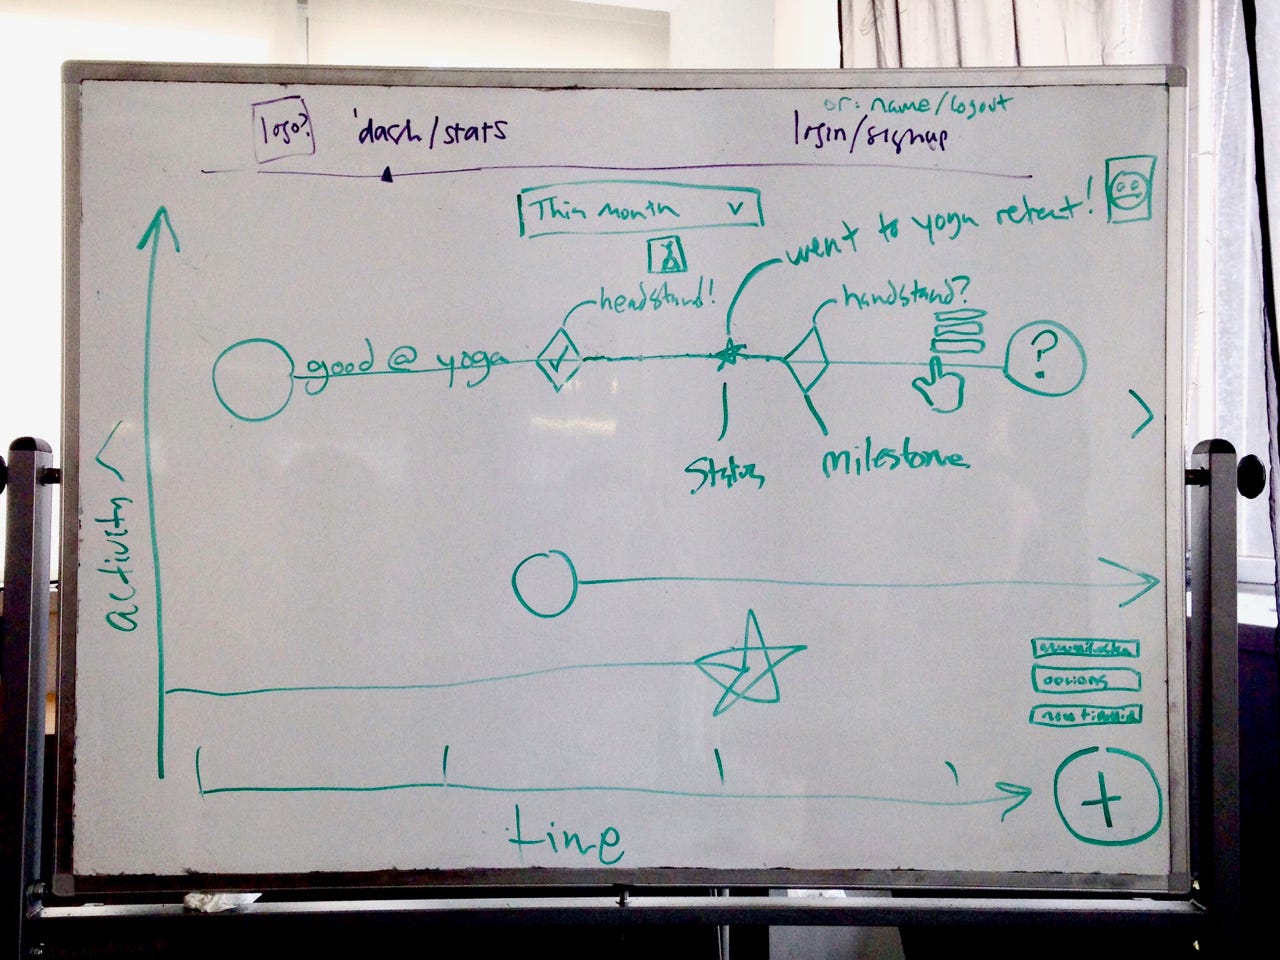 logo?
dash/stats
or: name/logout
login/signup
This month
went to yoga retreat!
headstand!
handstand?
good @ yoga
?
status
milestone
activity
options
+
time